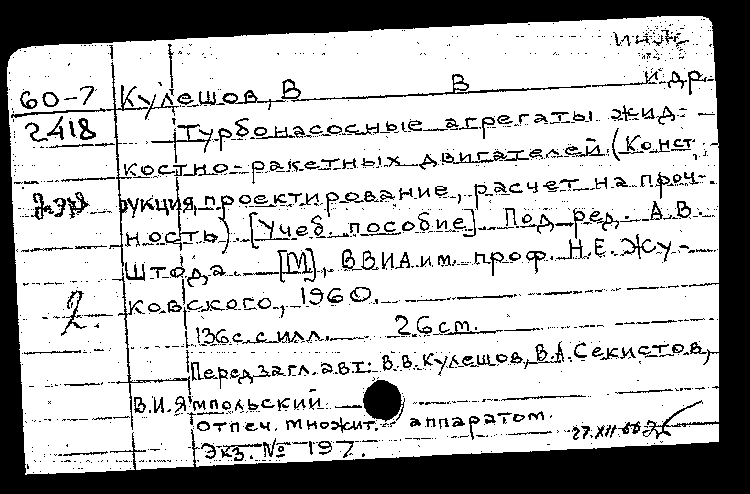 инж
60-7 Кулешов, В В и др.
2418 Турбонасосные агрегаты жид-
костно-ракетных двигателей (Конст-
рукция, проектирование, расчет на проч-
ность). [Учеб. пособие]. Под ред. А.В.
Штода. [М], ВВИА им. проф. Н.Е. Жу-
2. ковского, 1960.
136с. с илл. 26 cm.
Перед загл. авт: В.В. Кулешов, В.А. Секистов,
В.И. Ямпольский
Отпеч. множит. аппаратом.
Экз. № 197. 27.XII.66